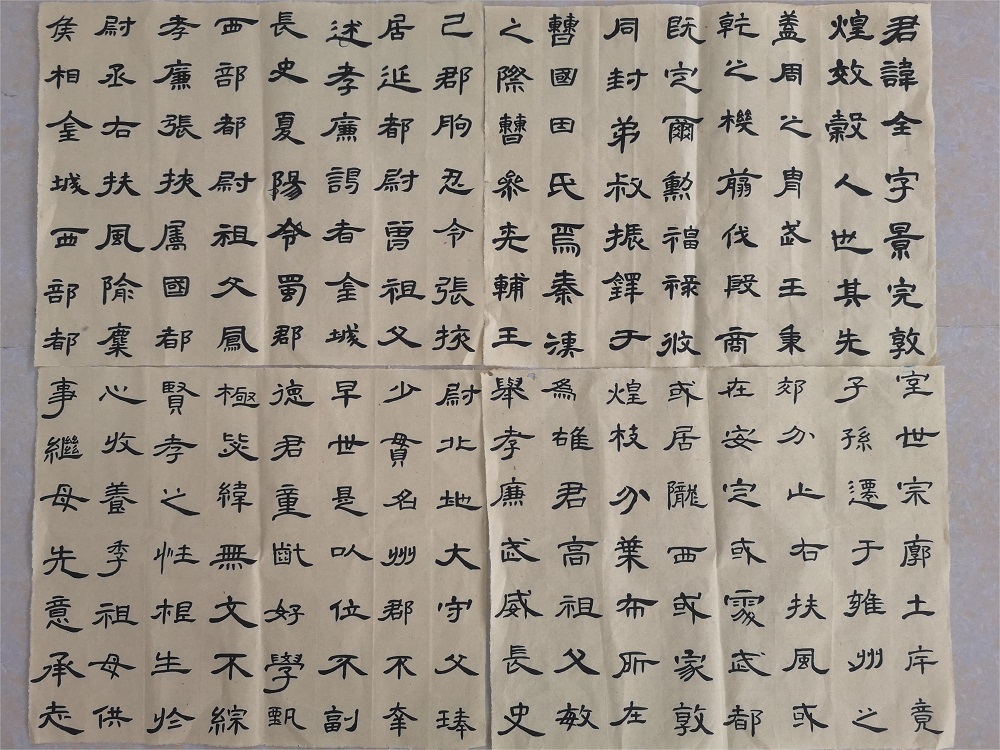 君諱全字景完敦
煌效穀人也其先
蓋周之胄武王秉
乾之機翦伐殷商
既定爾勳福祿攸
同封弟叔振鐸于
曹國因氏焉秦漢
之際曹參夾輔王
室世宗廓土斥竟
子孫遷于雍州之
郊分止右扶風或
在安定或處武都
或居隴西或家敦
煌枝分葉布所在
為雄君高祖父敏
舉孝廉武威長史
巴郡朐忍令張掖
居延都尉曾祖父
述孝廉謁者金城
長史夏陽令蜀郡
西部都尉祖父鳳
孝廉張掖屬國都
尉丞右扶風隃麋
侯相金城西部都
尉北地大守父琫
少貫名州郡不幸
早世是以位不副
德君童齔好學甄
極毖緯無文不綜
賢孝之性根生於
心收養季祖母供
事繼母先意承志